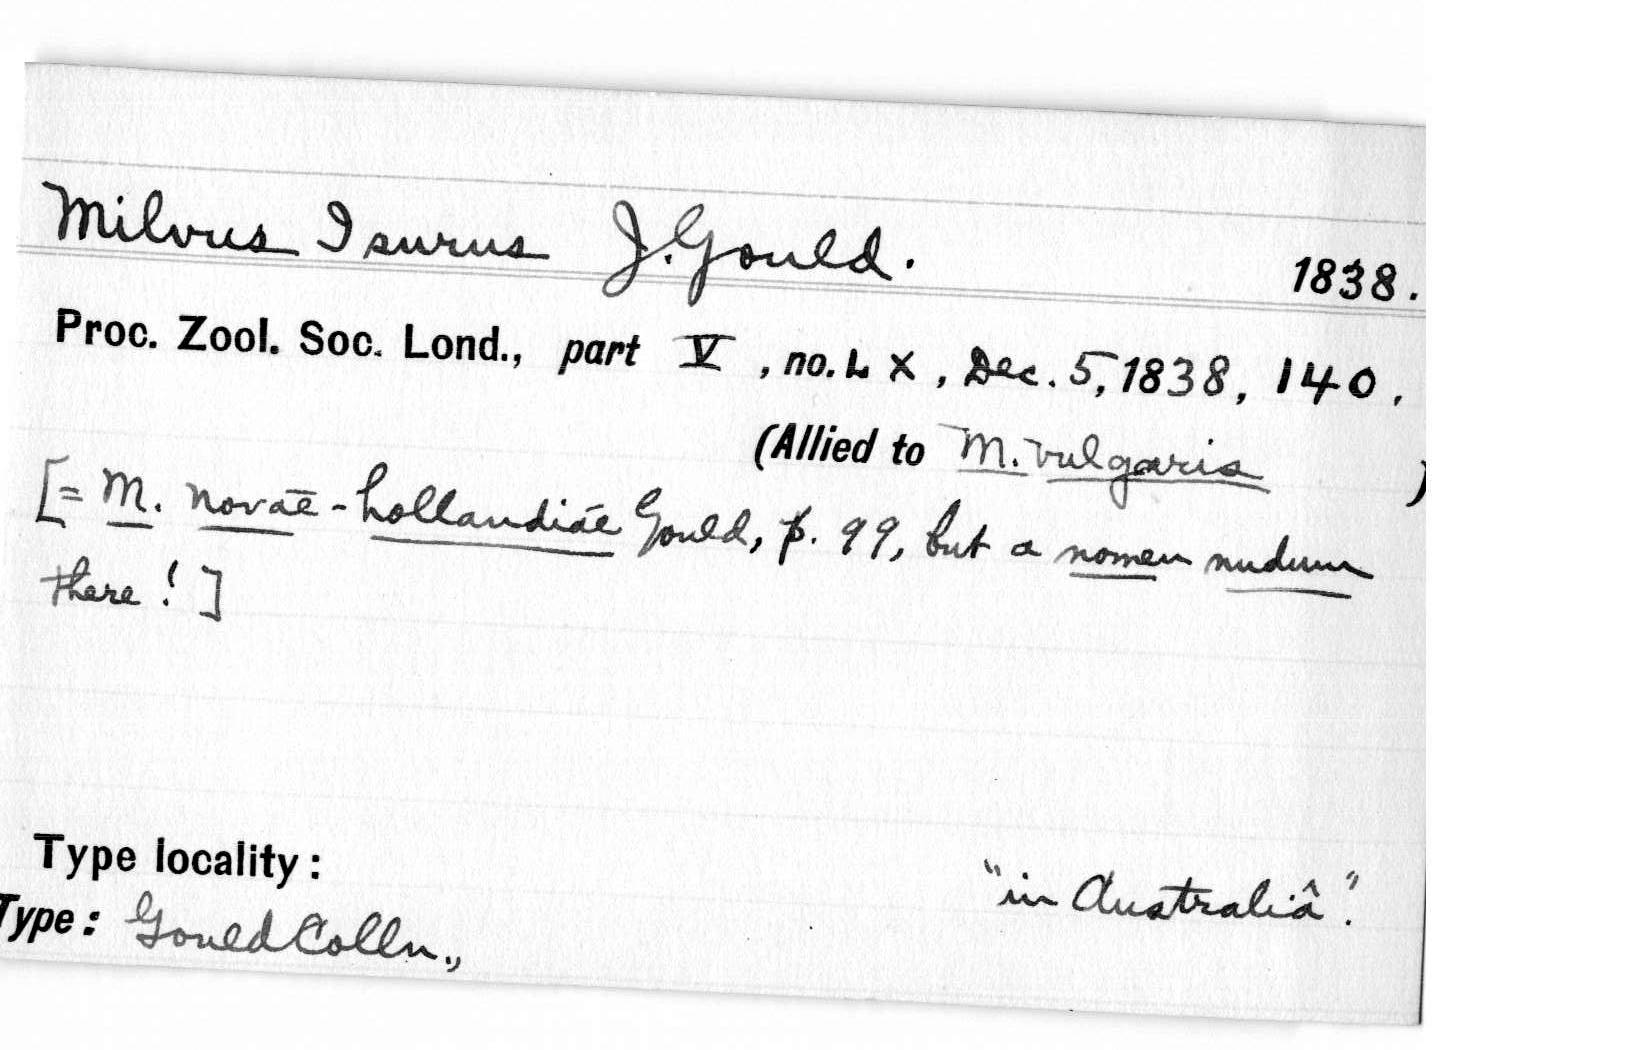 Milvus Isurus J. Gould. 1838.
Proc. Zool. Soc. Lond., part V, no. LX, Dec. 5, 1838, 140.
(Allied to M. vulgaris )
[= M. novae-hollandiae Gould, p. 99, but a nomen nudum
there! ]
Type locality: "in Australiâ".
Type: Gould Colln.,